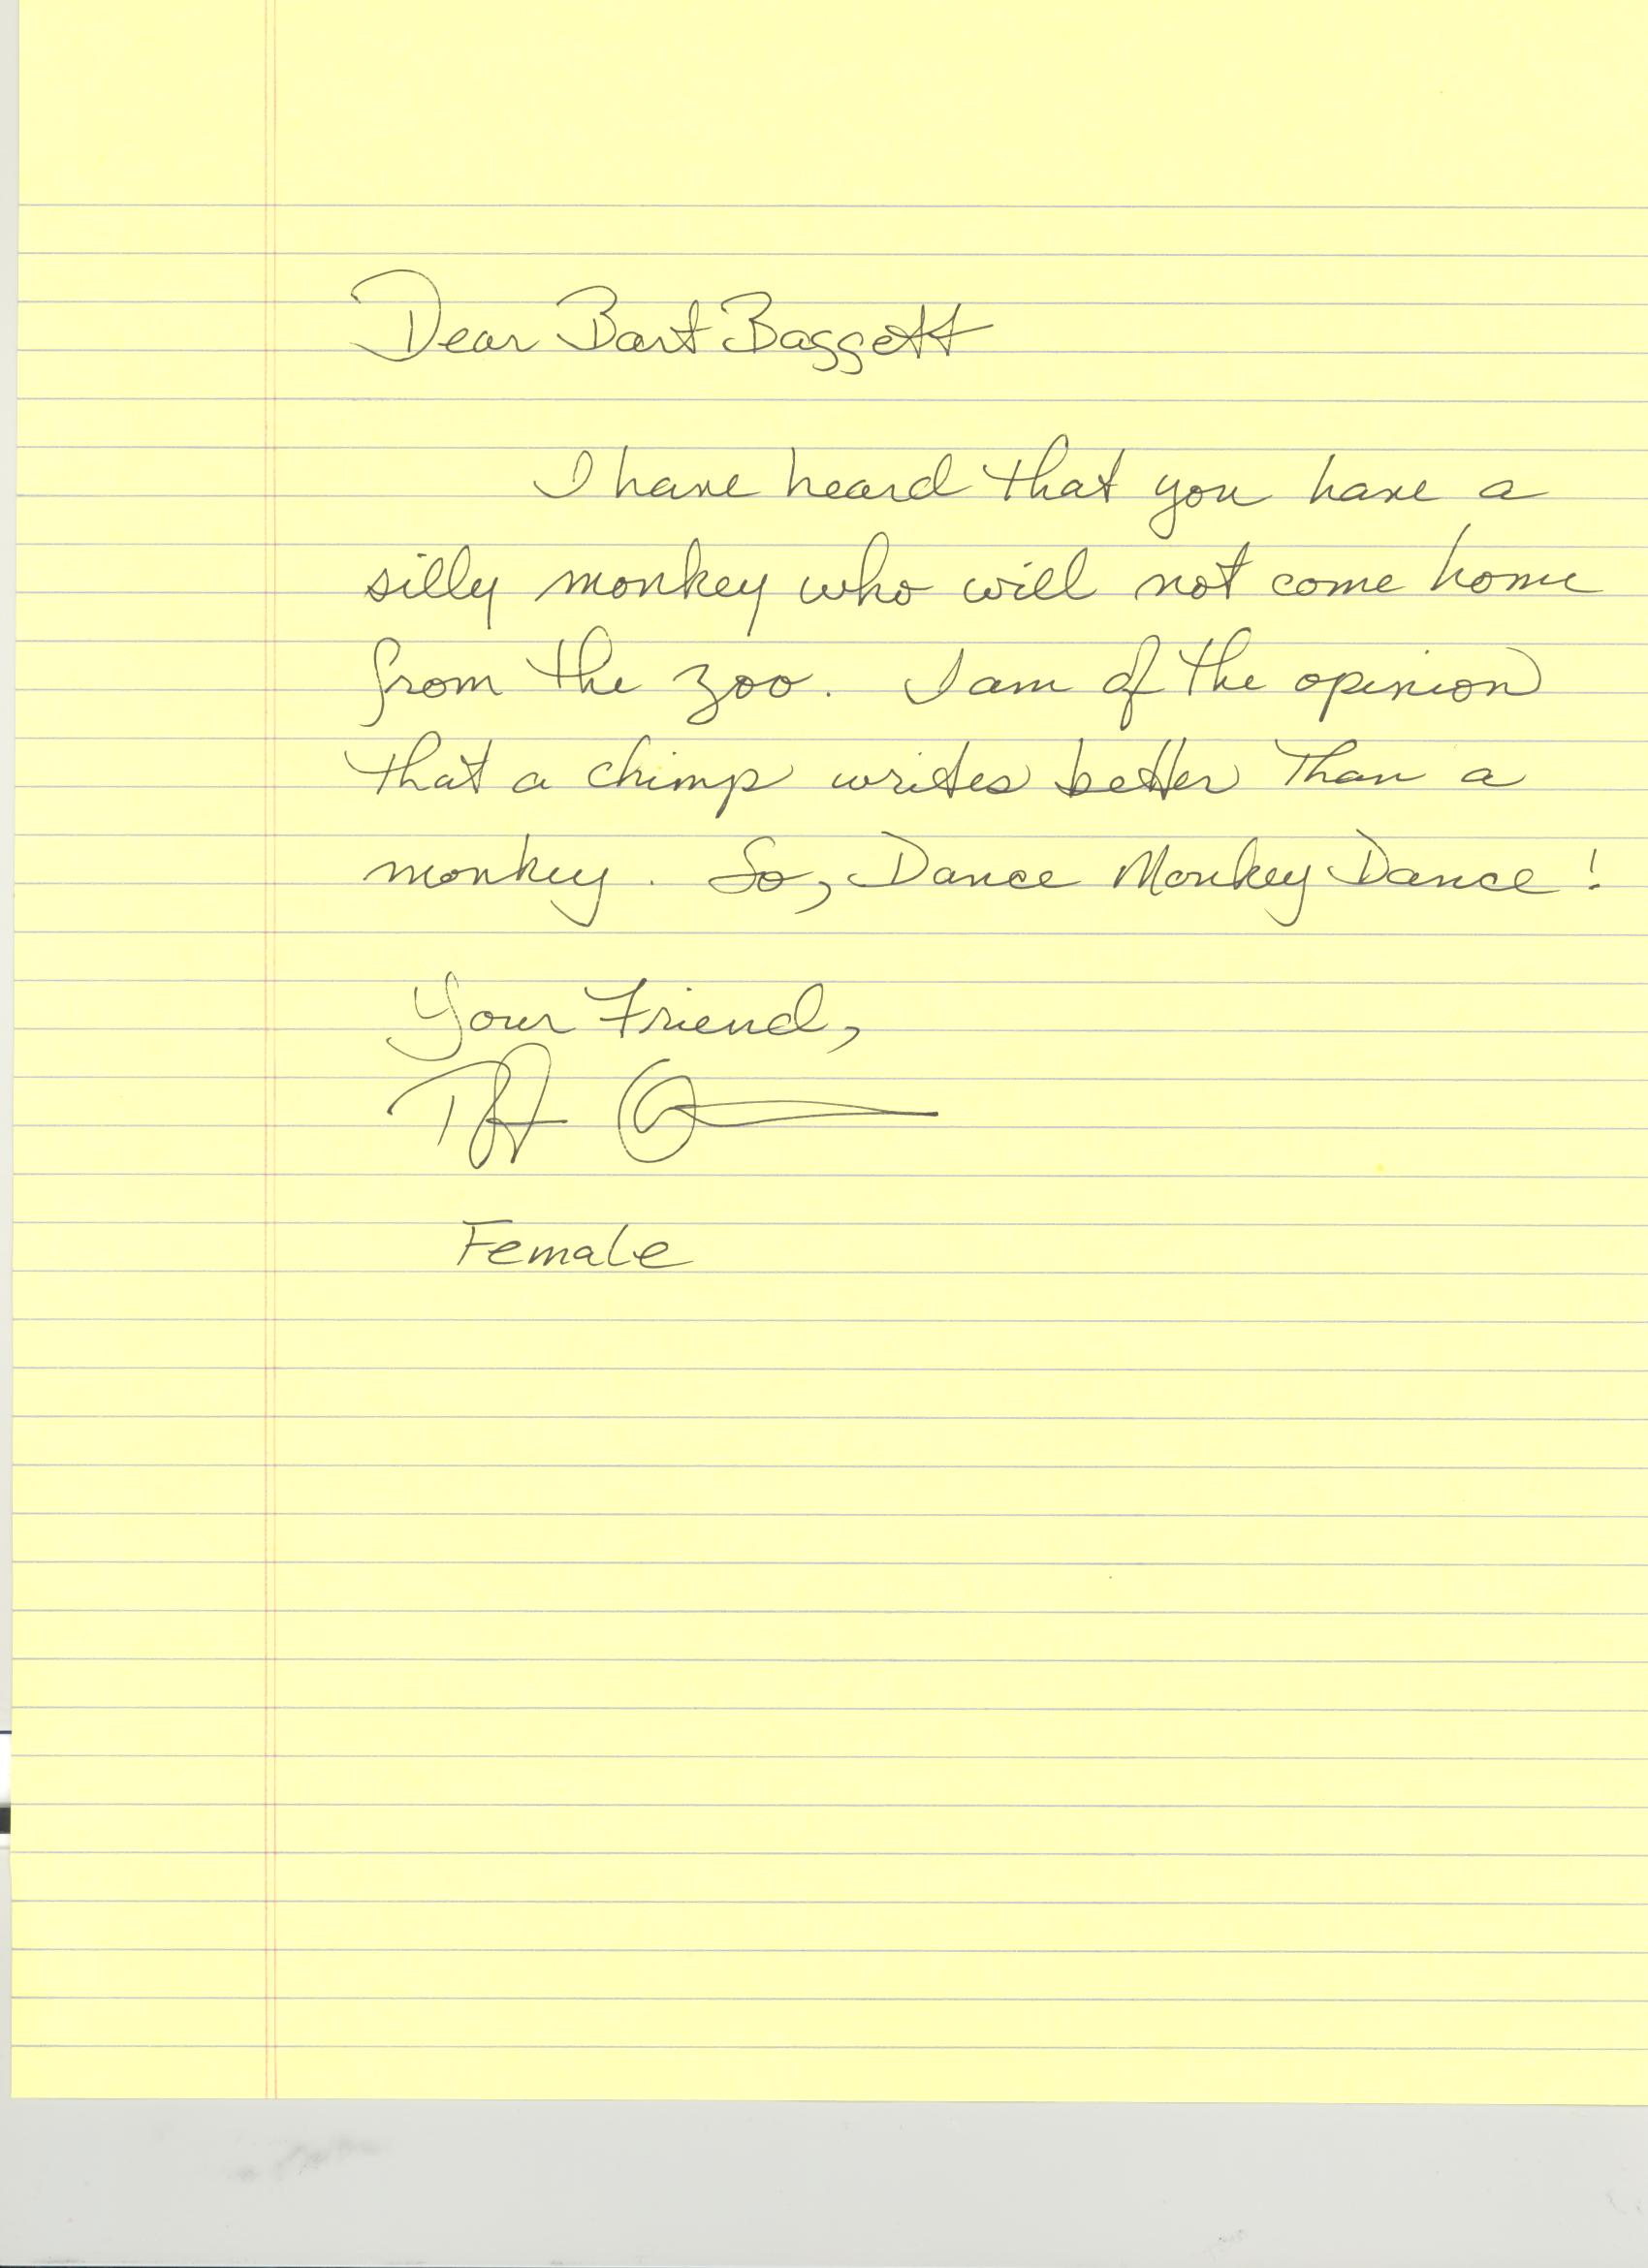 Dear Bart Baggett
I have heard that you have a
silly monkey who will not come home
from the zoo. I am of the opinion
that a chimp writes better than a
monkey. So, Dance Monkey Dance!
Your Friend,
Female